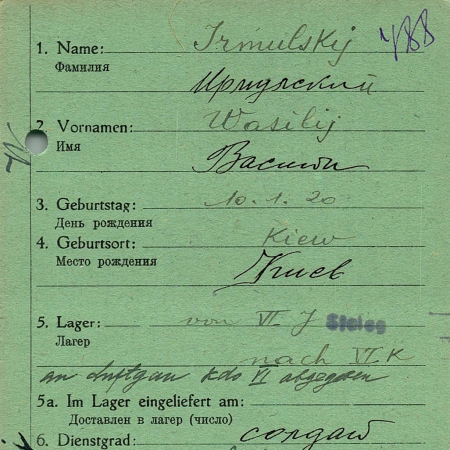 488
1. Name: Irmulskij
Фамилия
Ирмулский
2. Vornamen: Wasilij
Имя
Василий
3. Geburtstag: 10.1.20
День рождения
4. Geburtsort: Kiew
Место рождения
Киев
5. Lager: von VI J Stalag
Лагер
nach VI K
an Luftgau Kdo VI abgegeben
5a. Im Lager eingeliefert am:
Доставлен в лагер (число)
6. Dienstgrad: солдат